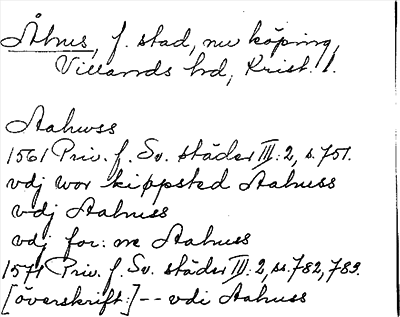 Åhus, f. stad, nu köping,
Villands hd, Krist. l.
Aahwss
1561 Priv. f. Sv. städer III:2, s. 751.
vdj wor kiøpsted Aahuss
vdj Aahuss
vdj for: ne Aahuss
1571 Priv. f. Sv. städer III:2, ss. 782, 789.
[överskrift:] -- vdi Aahuss